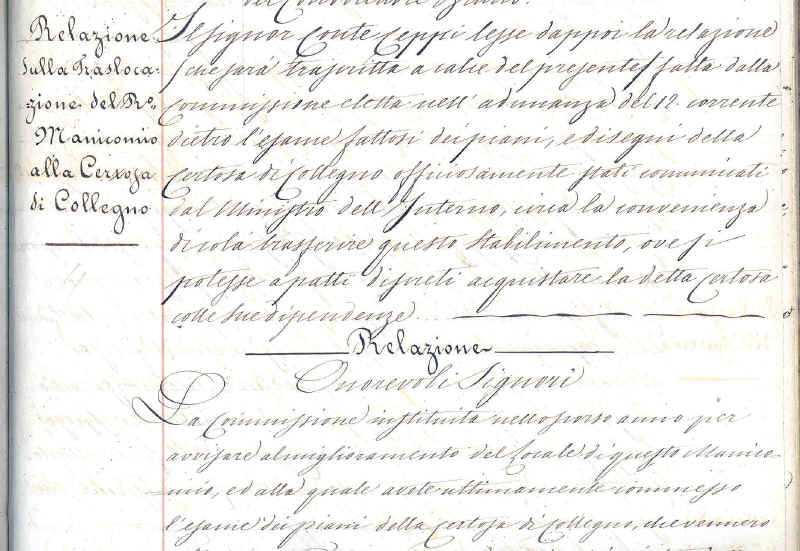 Relazione
sulla Trasloca-
zione del Ro.
Manicomio
alla Certosa
di Collegno
Il signor Conte Ceppi lesse dappoi la relazione
(che sarà trascritta a calce del presente) fatta dalla
Commissione eletta nell'adunanza del 12. corrente
dietro l'esame fattosi dei piani, e disegni della
Certosa di Collegno officiosamente stati comunicati
dal Ministro dell'Interno, circa la convenienza
di colà trasferire questo stabilimento, ove si
potesse a patti discreti acquistare la detta Certosa
colle sue dipendenze
Relazione
Onorevoli Signori
La Commissione instituita nello scorso anno per
avvisare al miglioramento del locale di questo Manico-
mio, ed alla quale avete ultimamente commesso
l'esame dei piani della Certosa di Collegno, che vennero